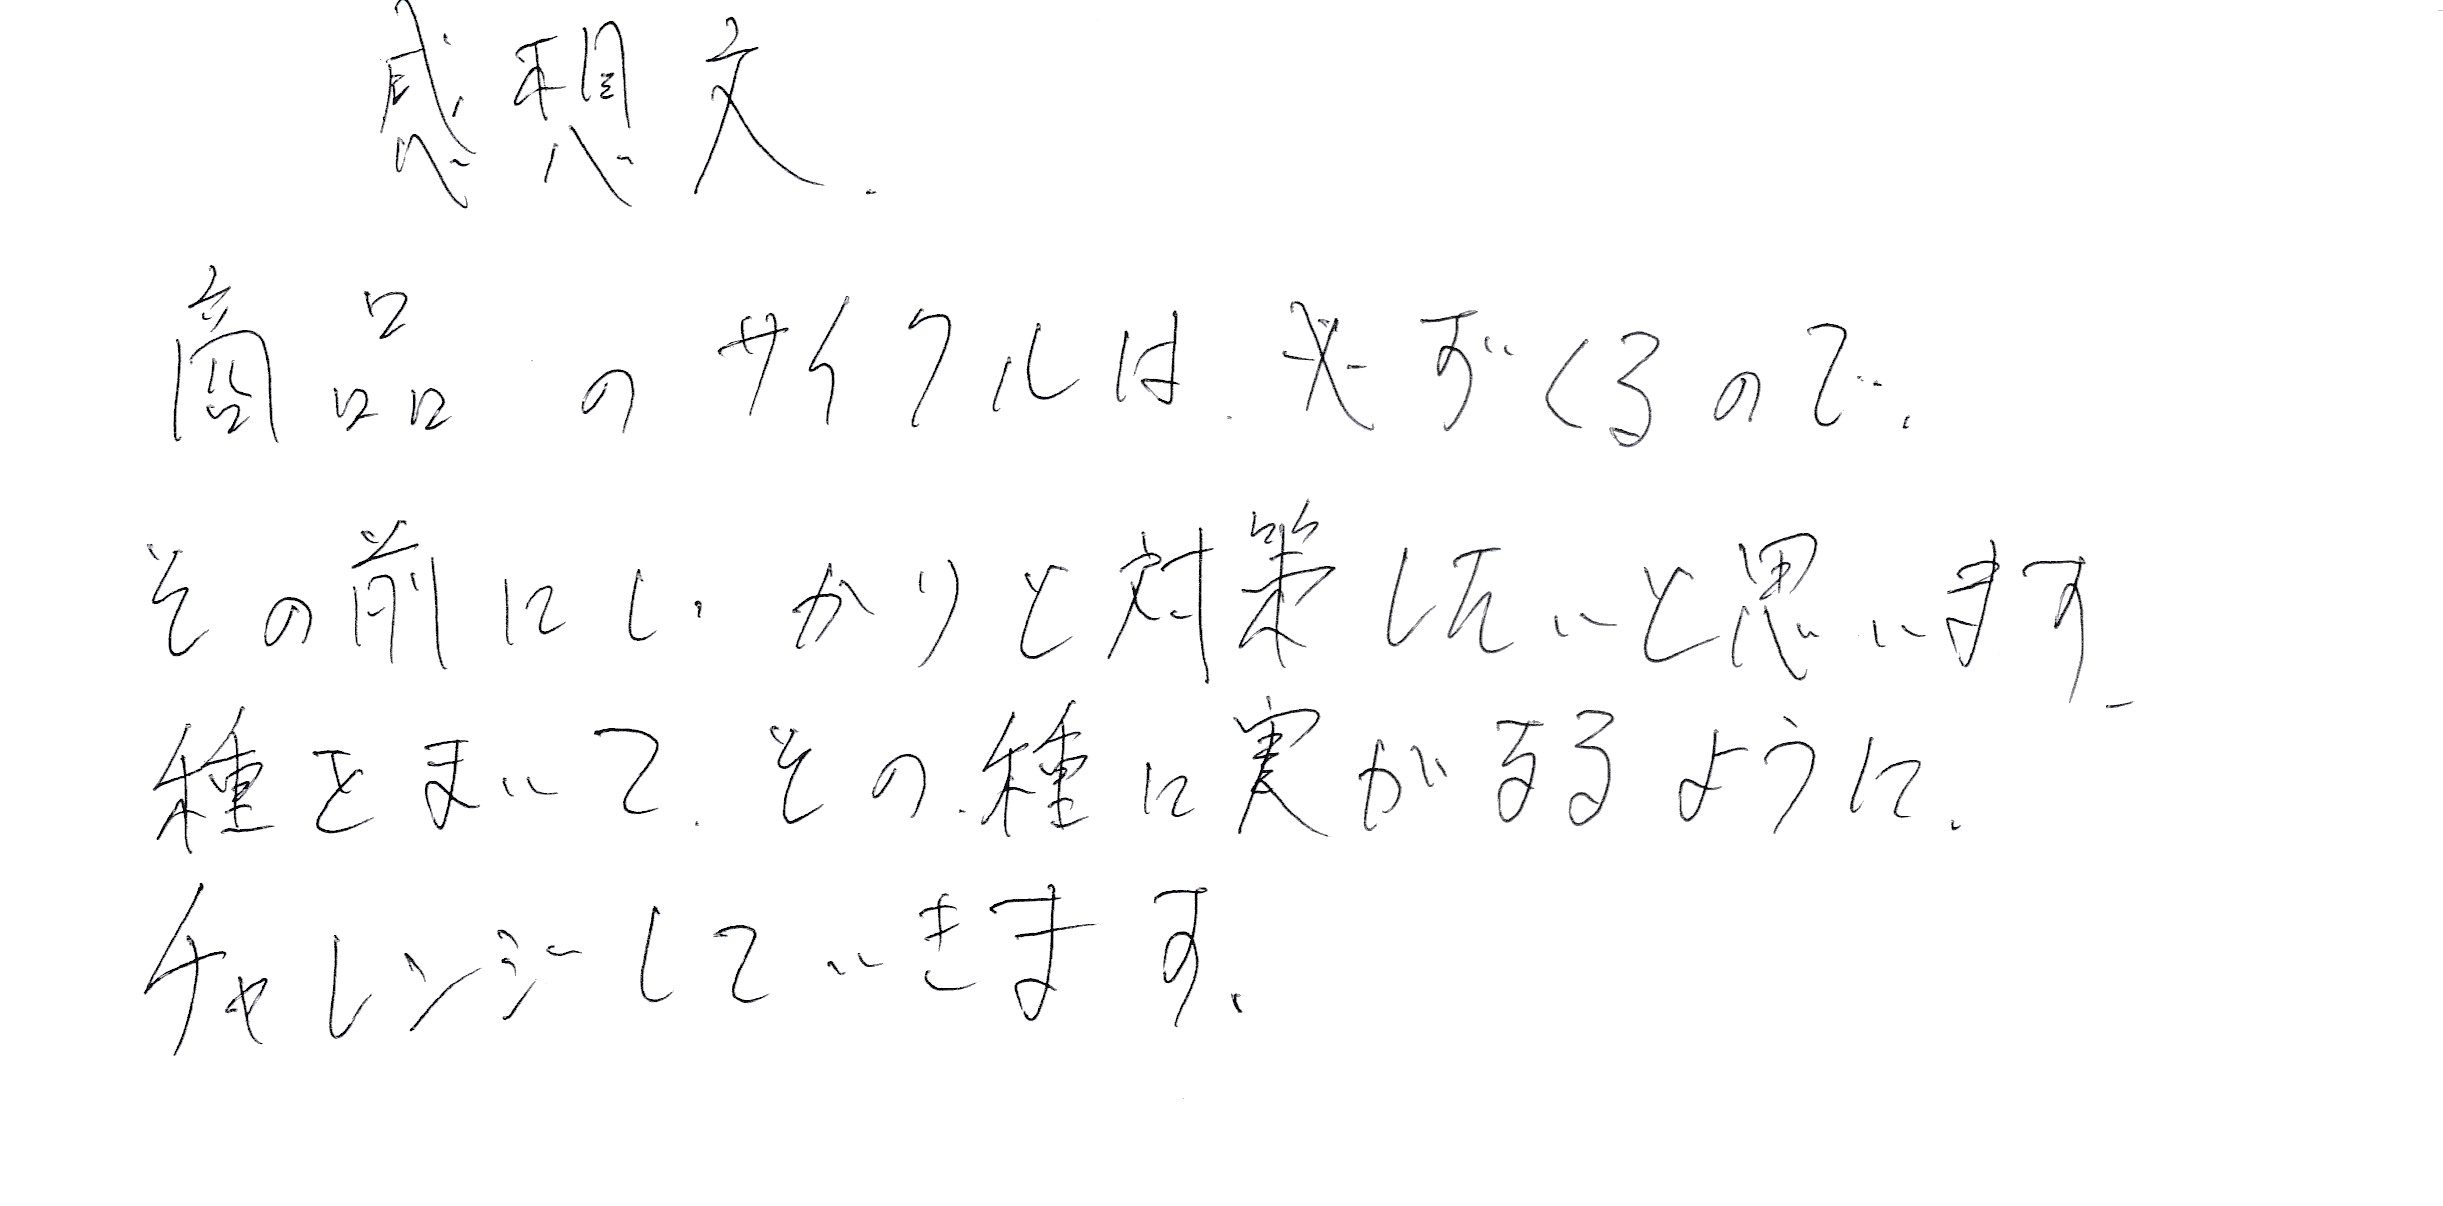 感想文.
商品のサイクルは、必ずくるので、
その前にしっかりと対策したいと思います。
種をまいて、その種に実がなるように、
チャレンジしていきます。